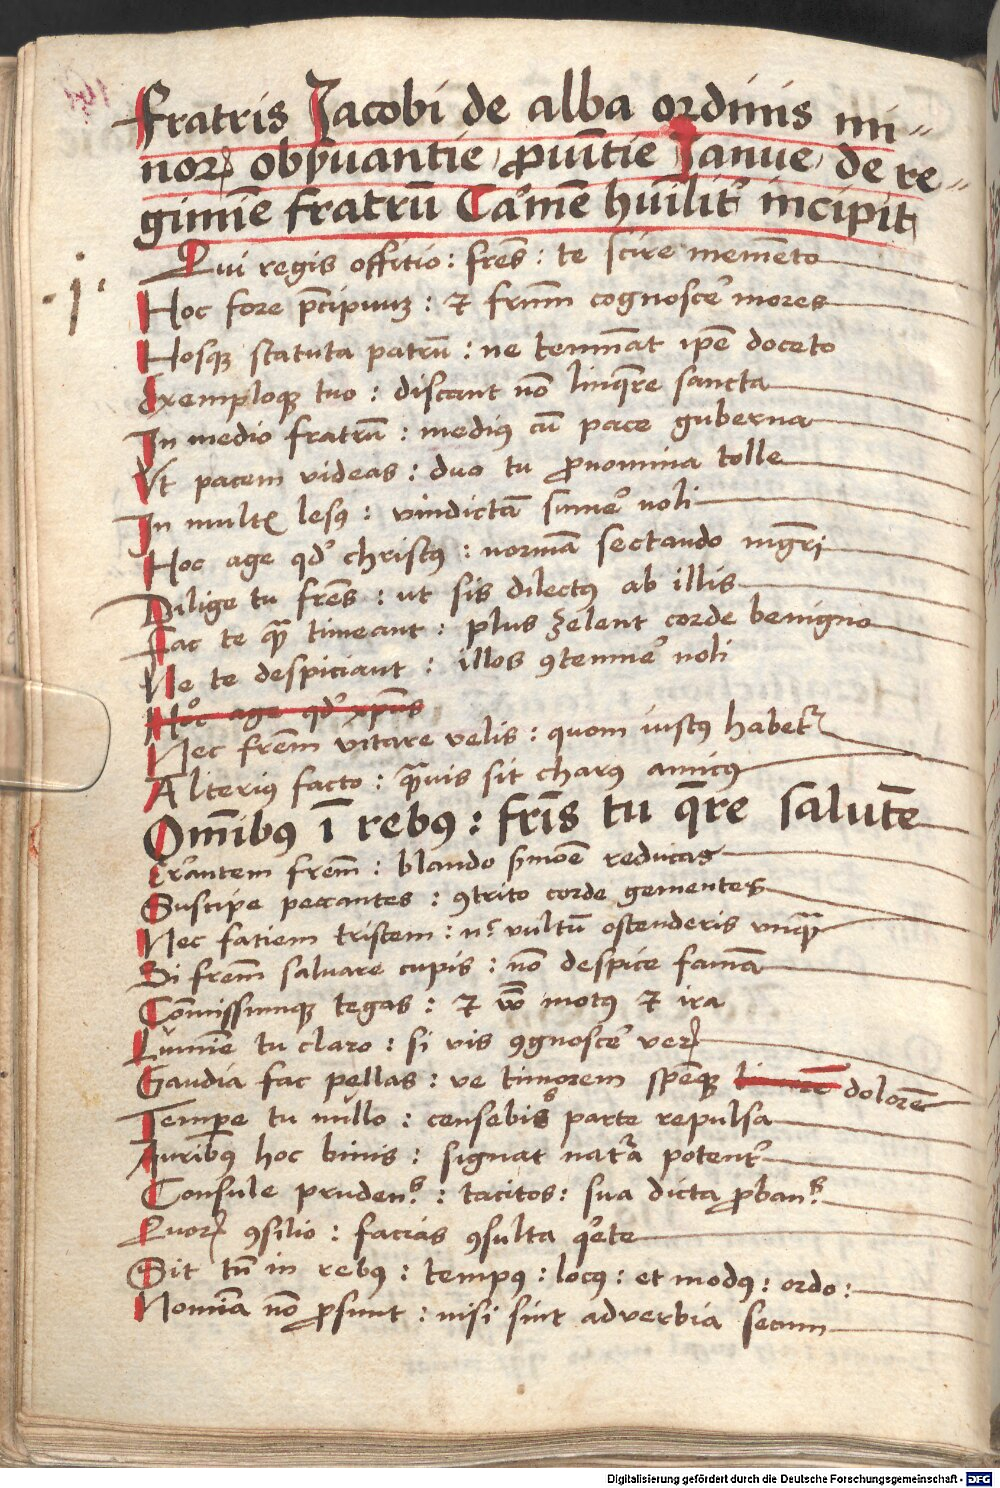 Fratris Jacobi de alba ordinis mi-
norꝝ obẜuantie ꝓuītie Janue de re-
gimīe fratrū Carmē hūilit̉ incipit
Qui regis offitio : frēs : te scire memēto
·j· Hoc fore p̄cipuuꝫ : ⁊ frūm cognosce͛ mores
Hosqꝫ statuta patrū : ne temnāt ip̄e doceto
Exemploqꝫ tuo : discant nō linq̄re sancta
In medio fratrū : mediꝰ cū pace guberna
Vt pacem videas : duo tu ꝓnomina tolle
In multꝭ lesꝰ : vindictā sume͛ noli
Hoc age qd̉ christꝰ : normā sectando mḡri
Dilige tu frēs : ut sis dilectꝰ ab illis
Fac te qᷓ timeant : plus zelent corde benigno
Ne te despiciant : illos ꝯtemne͛ noli
Hoc age qd̉ xp̄us
Nec frēm vitare velis : quom iustꝰ habet᷑
Alteriꝰ facto : qᷓuis sit charꝰ amicꝰ
Om̄ibꝰ ī rebꝰ : fris̄ tu q̄re salutē
Errantem frēm : blando ẜmoē reducas
Suscipe peccantes : ꝯtrito corde gementes
Nec fatiem tristem : nͨ vultū ostenderis vnqᷓ
Si frēm saluare cupis : nō despice famā
Cōmissumqꝫ tegas : ⁊ motꝰ ⁊ ira
Lumīe tu claro : si vis ꝯgnosce͛ verꝝ
Gaudia fac pellas : ve timorem spēqꝫ dolorē
Tempe̱ tu nullo : censebis parte repulsa
Auribꝰ hoc binis : signat natᷓa potent̉
Consule prudenˢ : tacitos : sua dicta ꝓbanˢ
Quorꝝ ꝯsilio : facias ꝯsulta q̄ete
Sit tn̄ in rebꝰ : tempꝰ : locꝰ : et modꝰ : ordo :
Nomīa nō ꝓsunt : nisi sint adverbia secum
Digitalisierung gefördert durch die Deutsche Forschungsgemeinschaft - DFG